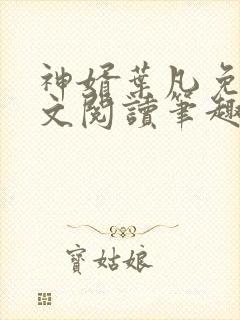 神婿葉凡免
文閱讀筆趣
寶姑娘